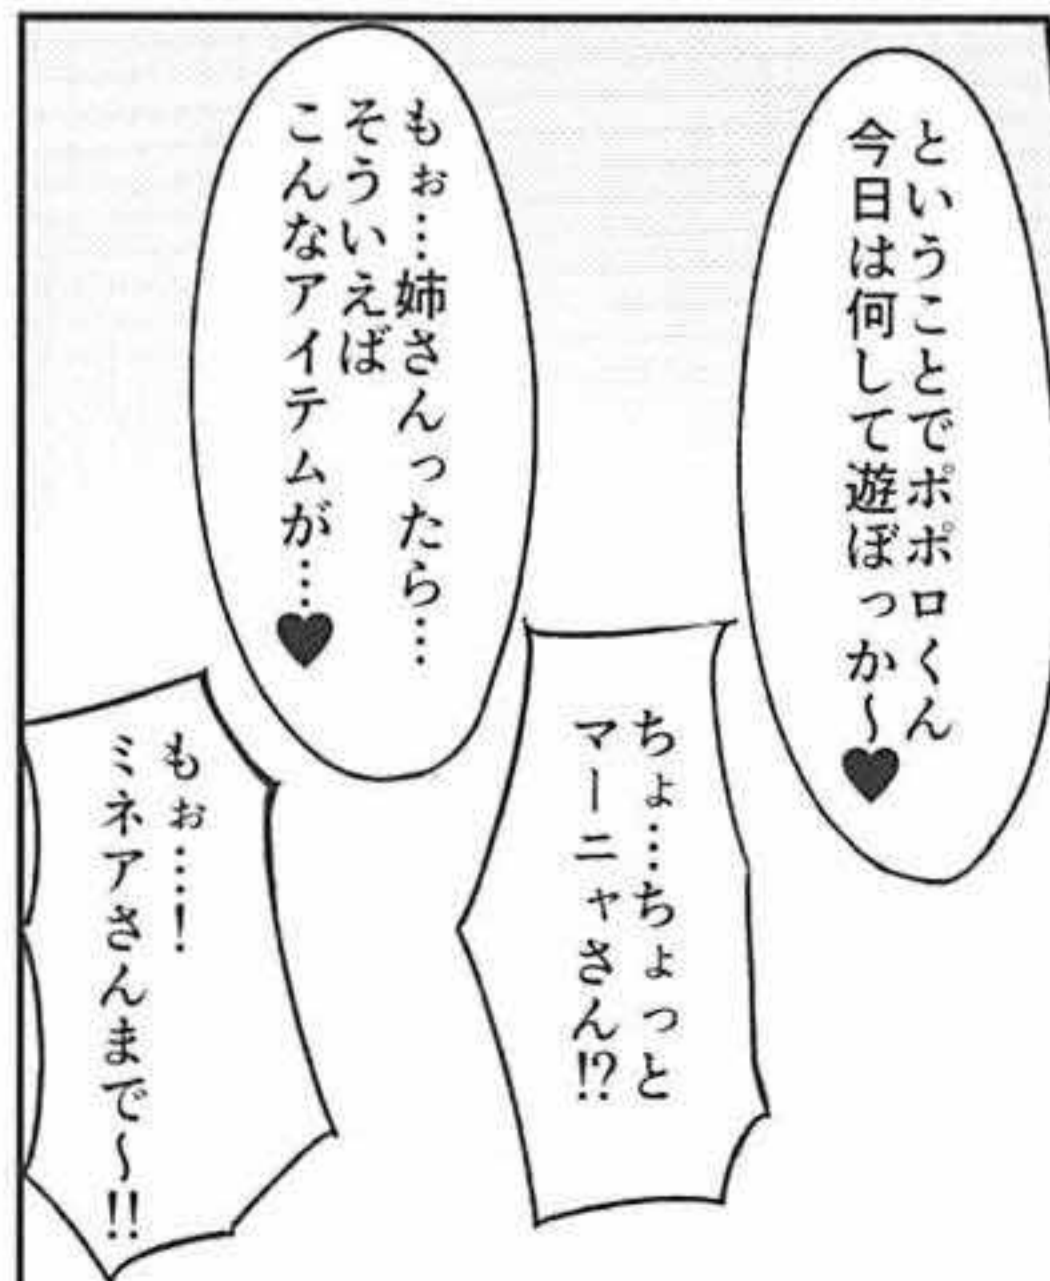 ということでポポロくん
今日は何して遊ぼっか～♥
ちょ…ちょっと
マーニャさん!?
もぉ…姉さんったら…
そういえば
こんなアイテムが…♥
もぉ……!
ミネアさんまで～!!